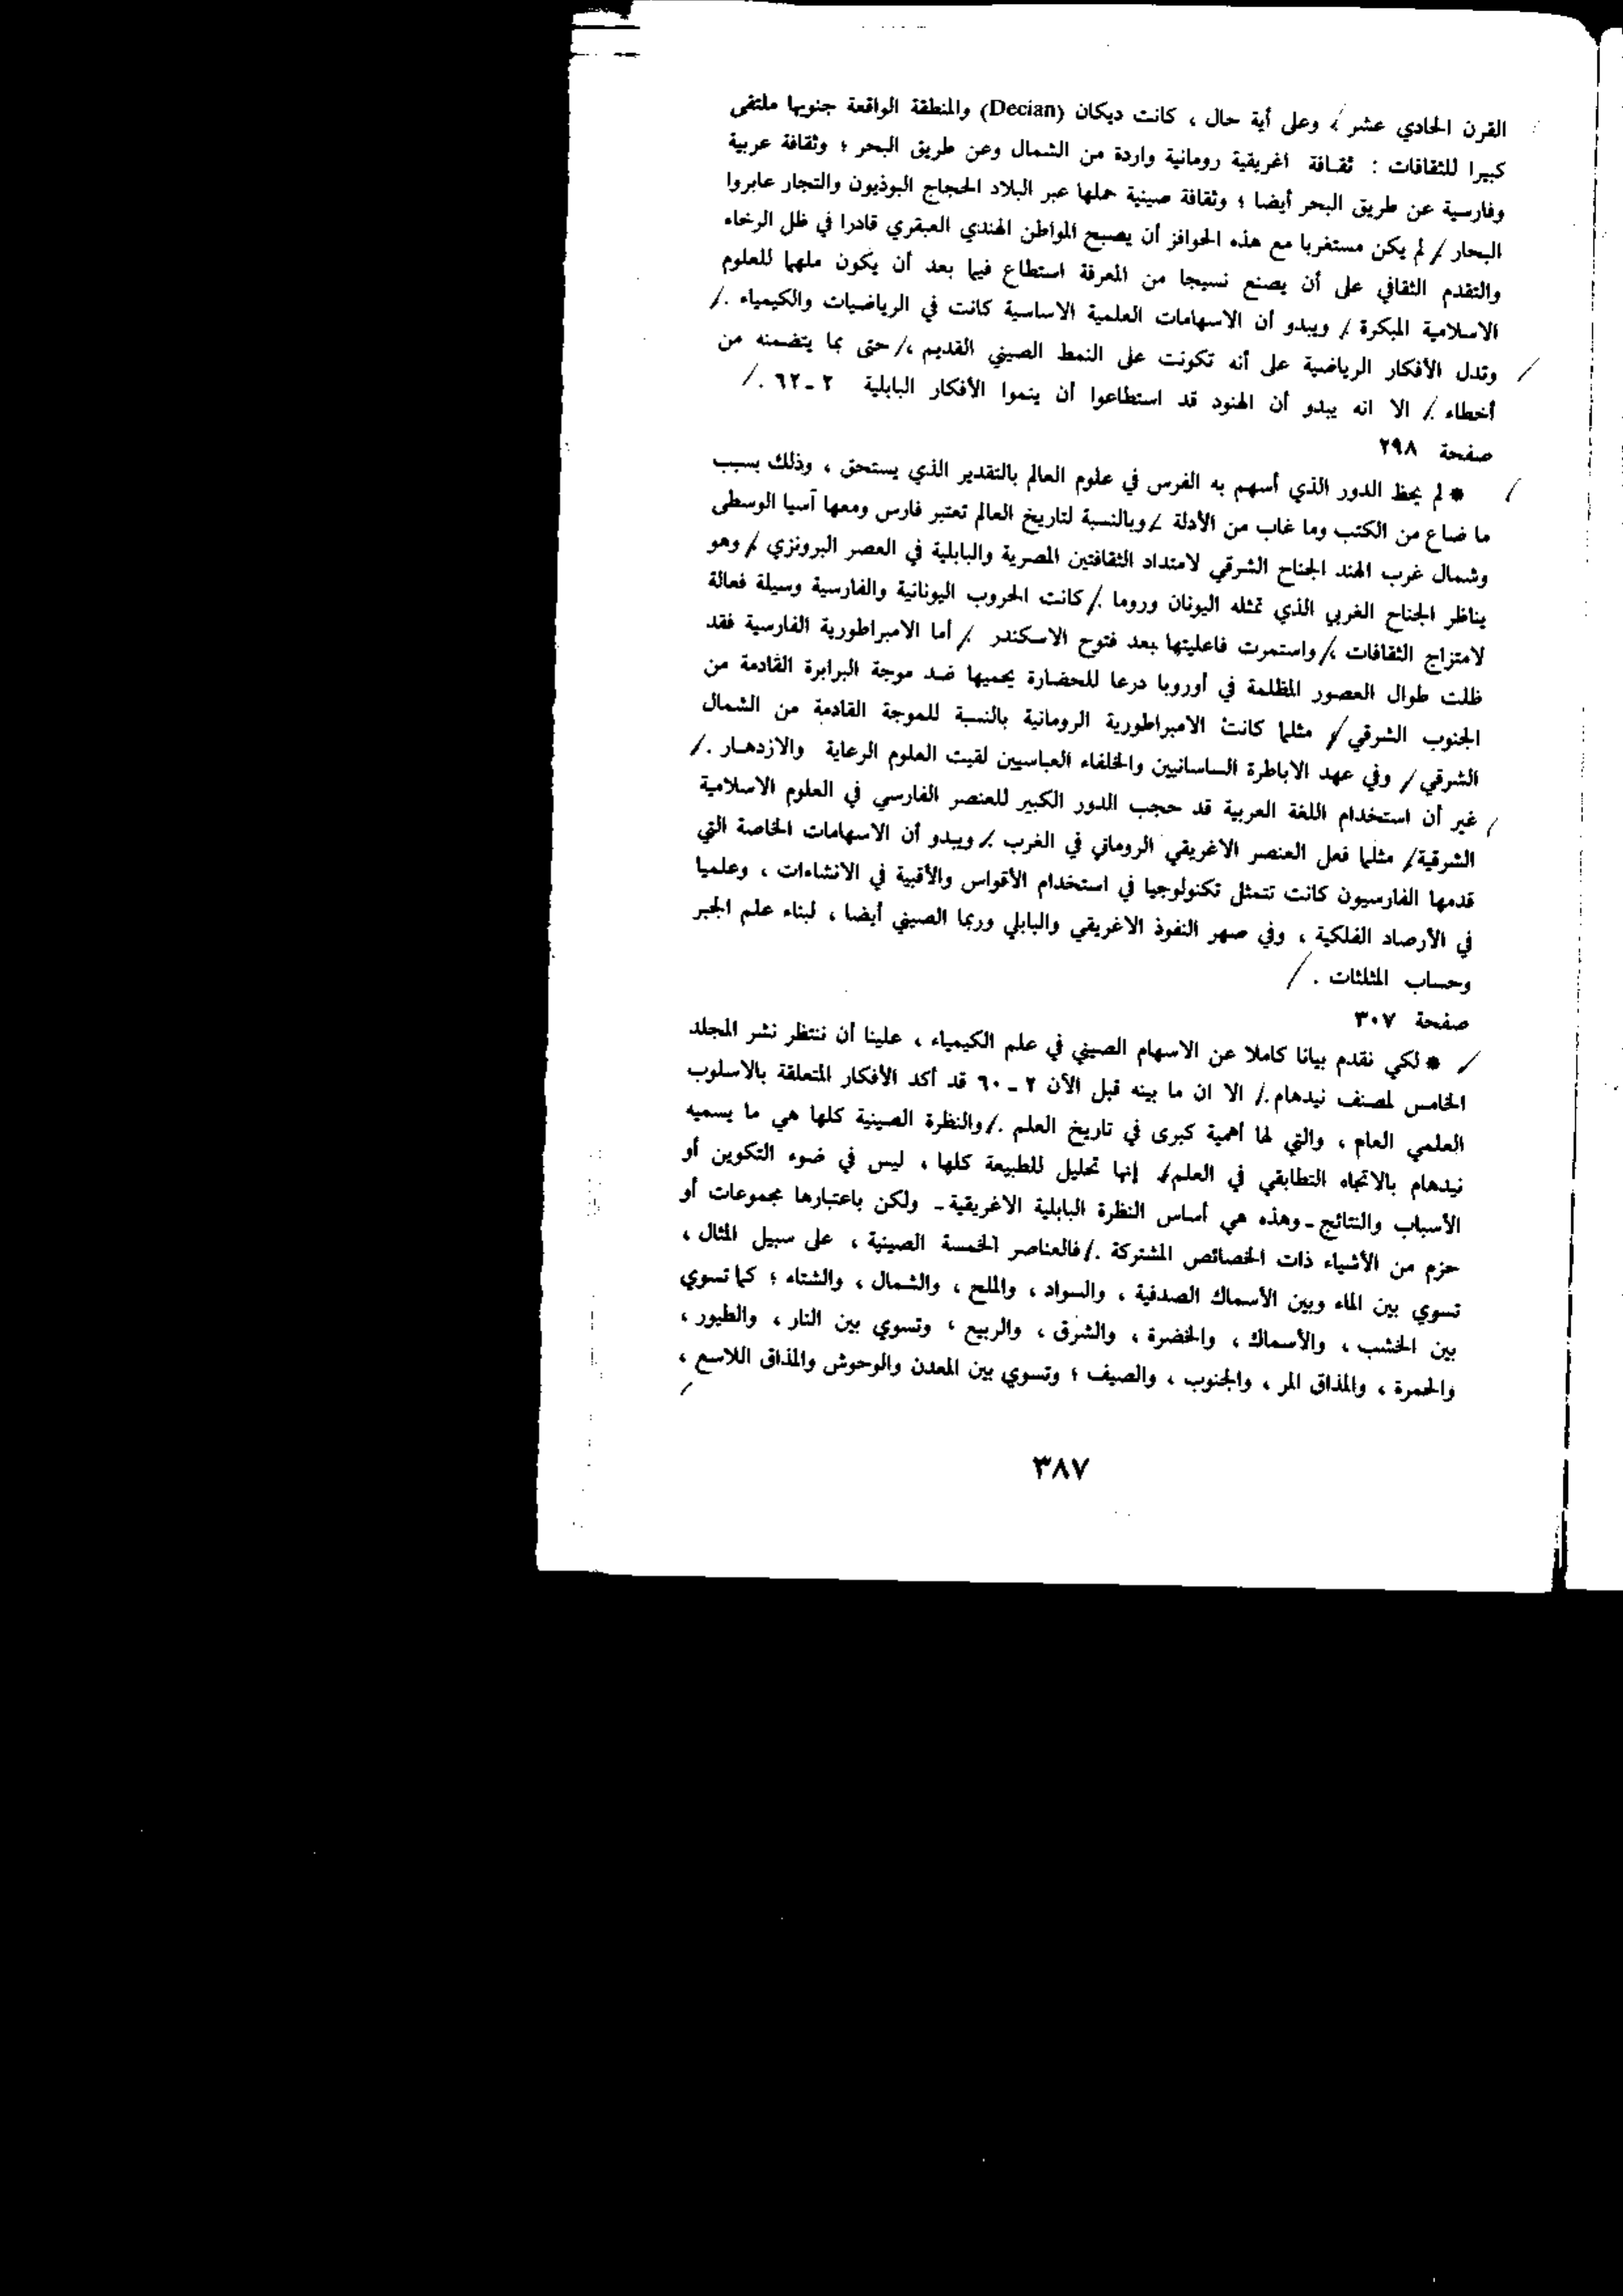 القرن الحادي عشر ، وعلى أية حال ، كانت ديكان (Decian) والمنطقة الواقعة جنوبها ملتقى
كبيرا للثقافات : ثقافة اغريقية رومانية واردة من الشمال وعن طريق البحر ؛ وثقافة عربية
وفارسية عن طريق البحر أيضا ؛ وثقافة صينية حملها عبر البلاد الحجاج البوذيون والتجار عابروا
البحار / لم يكن مستغربا مع هذه الحوافز أن يصبح المواطن الهندي العبقري قادرا في ظل الرخاء
والتقدم الثقافي على أن يصنع نسيجا من المعرفة استطاع فيما بعد أن يكون ملهما للعلوم
الاسلامية المبكرة / ويبدو أن الاسهامات العلمية الاساسية كانت في الرياضيات والكيمياء ./
وتدل الأفكار الرياضية على أنه تكونت على النمط الصيني القديم ،/ حتى بما يتضمنه من
أخطاء ./ الا انه يبدو أن الهنود قد استطاعوا أن ينموا الأفكار البابلية ٢ - ٦٢ ./
صفحة ٢٩٨
* لم يحظ الدور الذي أسهم به الفرس في علوم العالم بالتقدير الذي يستحق ، وذلك بسبب
ما ضاع من الكتب وما غاب من الأدلة ./ وبالنسبة لتاريخ العالم تعتبر فارس ومعها آسيا الوسطى
وشمال غرب الهند الجناح الشرقي لامتداد الثقافتين المصرية والبابلية في العصر البرونزي / وهو
يناظر الجناح الغربي الذي تمثله اليونان وروما ./ كانت الحروب اليونانية والفارسية وسيلة فعالة
لامتزاج الثقافات ،/ واستمرت فاعليتها بعد فتوح الاسكندر ./ أما الامبراطورية الفارسية فقد
ظلت طوال العصور المظلمة في أوروبا درعا للحضارة يحميها ضد موجة البرابرة القادمة من
الجنوب الشرقي / مثلما كانت الامبراطورية الرومانية بالنسبة للموجة القادمة من الشمال
الشرقي / وفي عهد الاباطرة الساسانيين والخلفاء العباسيين لقيت العلوم الرعاية والازدهار ./
غير أن استخدام اللغة العربية قد حجب الدور الكبير للعنصر الفارسي في العلوم الاسلامية
الشرقية / مثلما فعل العنصر الاغريقي الروماني في الغرب ./ ويبدو أن الاسهامات الخاصة التي
قدمها الفارسيون كانت تتمثل تكنولوجيا في استخدام الأقواس والأقبية في الانشاءات ، وعلميا
في الأرصاد الفلكية ، وفي صهر النفوذ الاغريقي والبابلي وربما الصيني أيضا ، لبناء علم الجبر
وحساب المثلثات . /
صفحة ٣٠٧
* لكي نقدم بيانا كاملا عن الاسهام الصيني في علم الكيمياء ، علينا أن ننتظر نشر المجلد
الخامس لمصنف نيدهام ./ الا ان ما بينه قبل الآن ٢ - ٦٠ قد أكد الأفكار المتعلقة بالاسلوب
العلمي العام ، والتي لها أهمية كبرى في تاريخ العلم ./ والنظرة الصينية كلها هي ما يسميه
نيدهام بالاتجاه التطابقي في العلم / إنها تحليل للطبيعة كلها ، ليس في ضوء التكوين أو
الأسباب والنتائج - وهذه هي أساس النظرة البابلية الاغريقية - ولكن باعتبارها مجموعات أو
حزم من الأشياء ذات الخصائص المشتركة ./ فالعناصر الخمسة الصينية ، على سبيل المثال ،
تسوي بين الماء وبين الأسماك الصدفية ، والسواد ، والملح ، والشمال ، والشتاء ؛ كما تسوي
بين الخشب ، والأسماك ، والخضرة ، والشرق ، والربيع ؛ وتسوي بين النار ، والطيور ،
والحمرة ، والمذاق المر ، والجنوب ، والصيف ؛ وتسوي بين المعدن والوحوش والمذاق اللاسع ،
٣٨٧